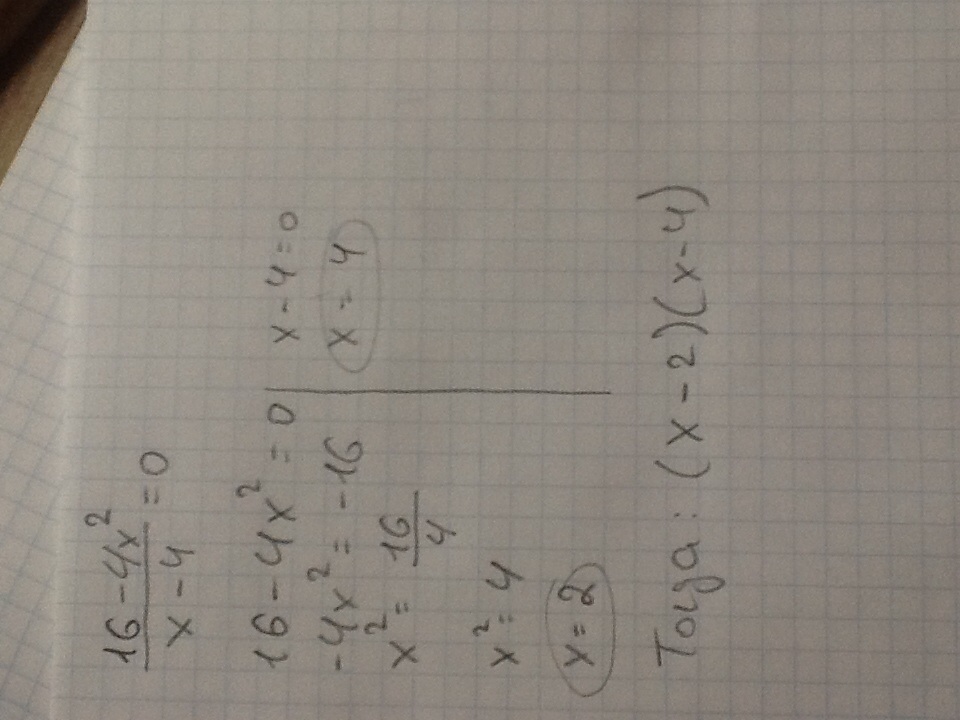 16 - 4x² / x - 4 = 0
16 - 4x² = 0
-4x² = -16
x² = 16/4
x² = 4
x = 2
x - 4 = 0
x = 4
Тоуа: (x - 2)(x - 4)